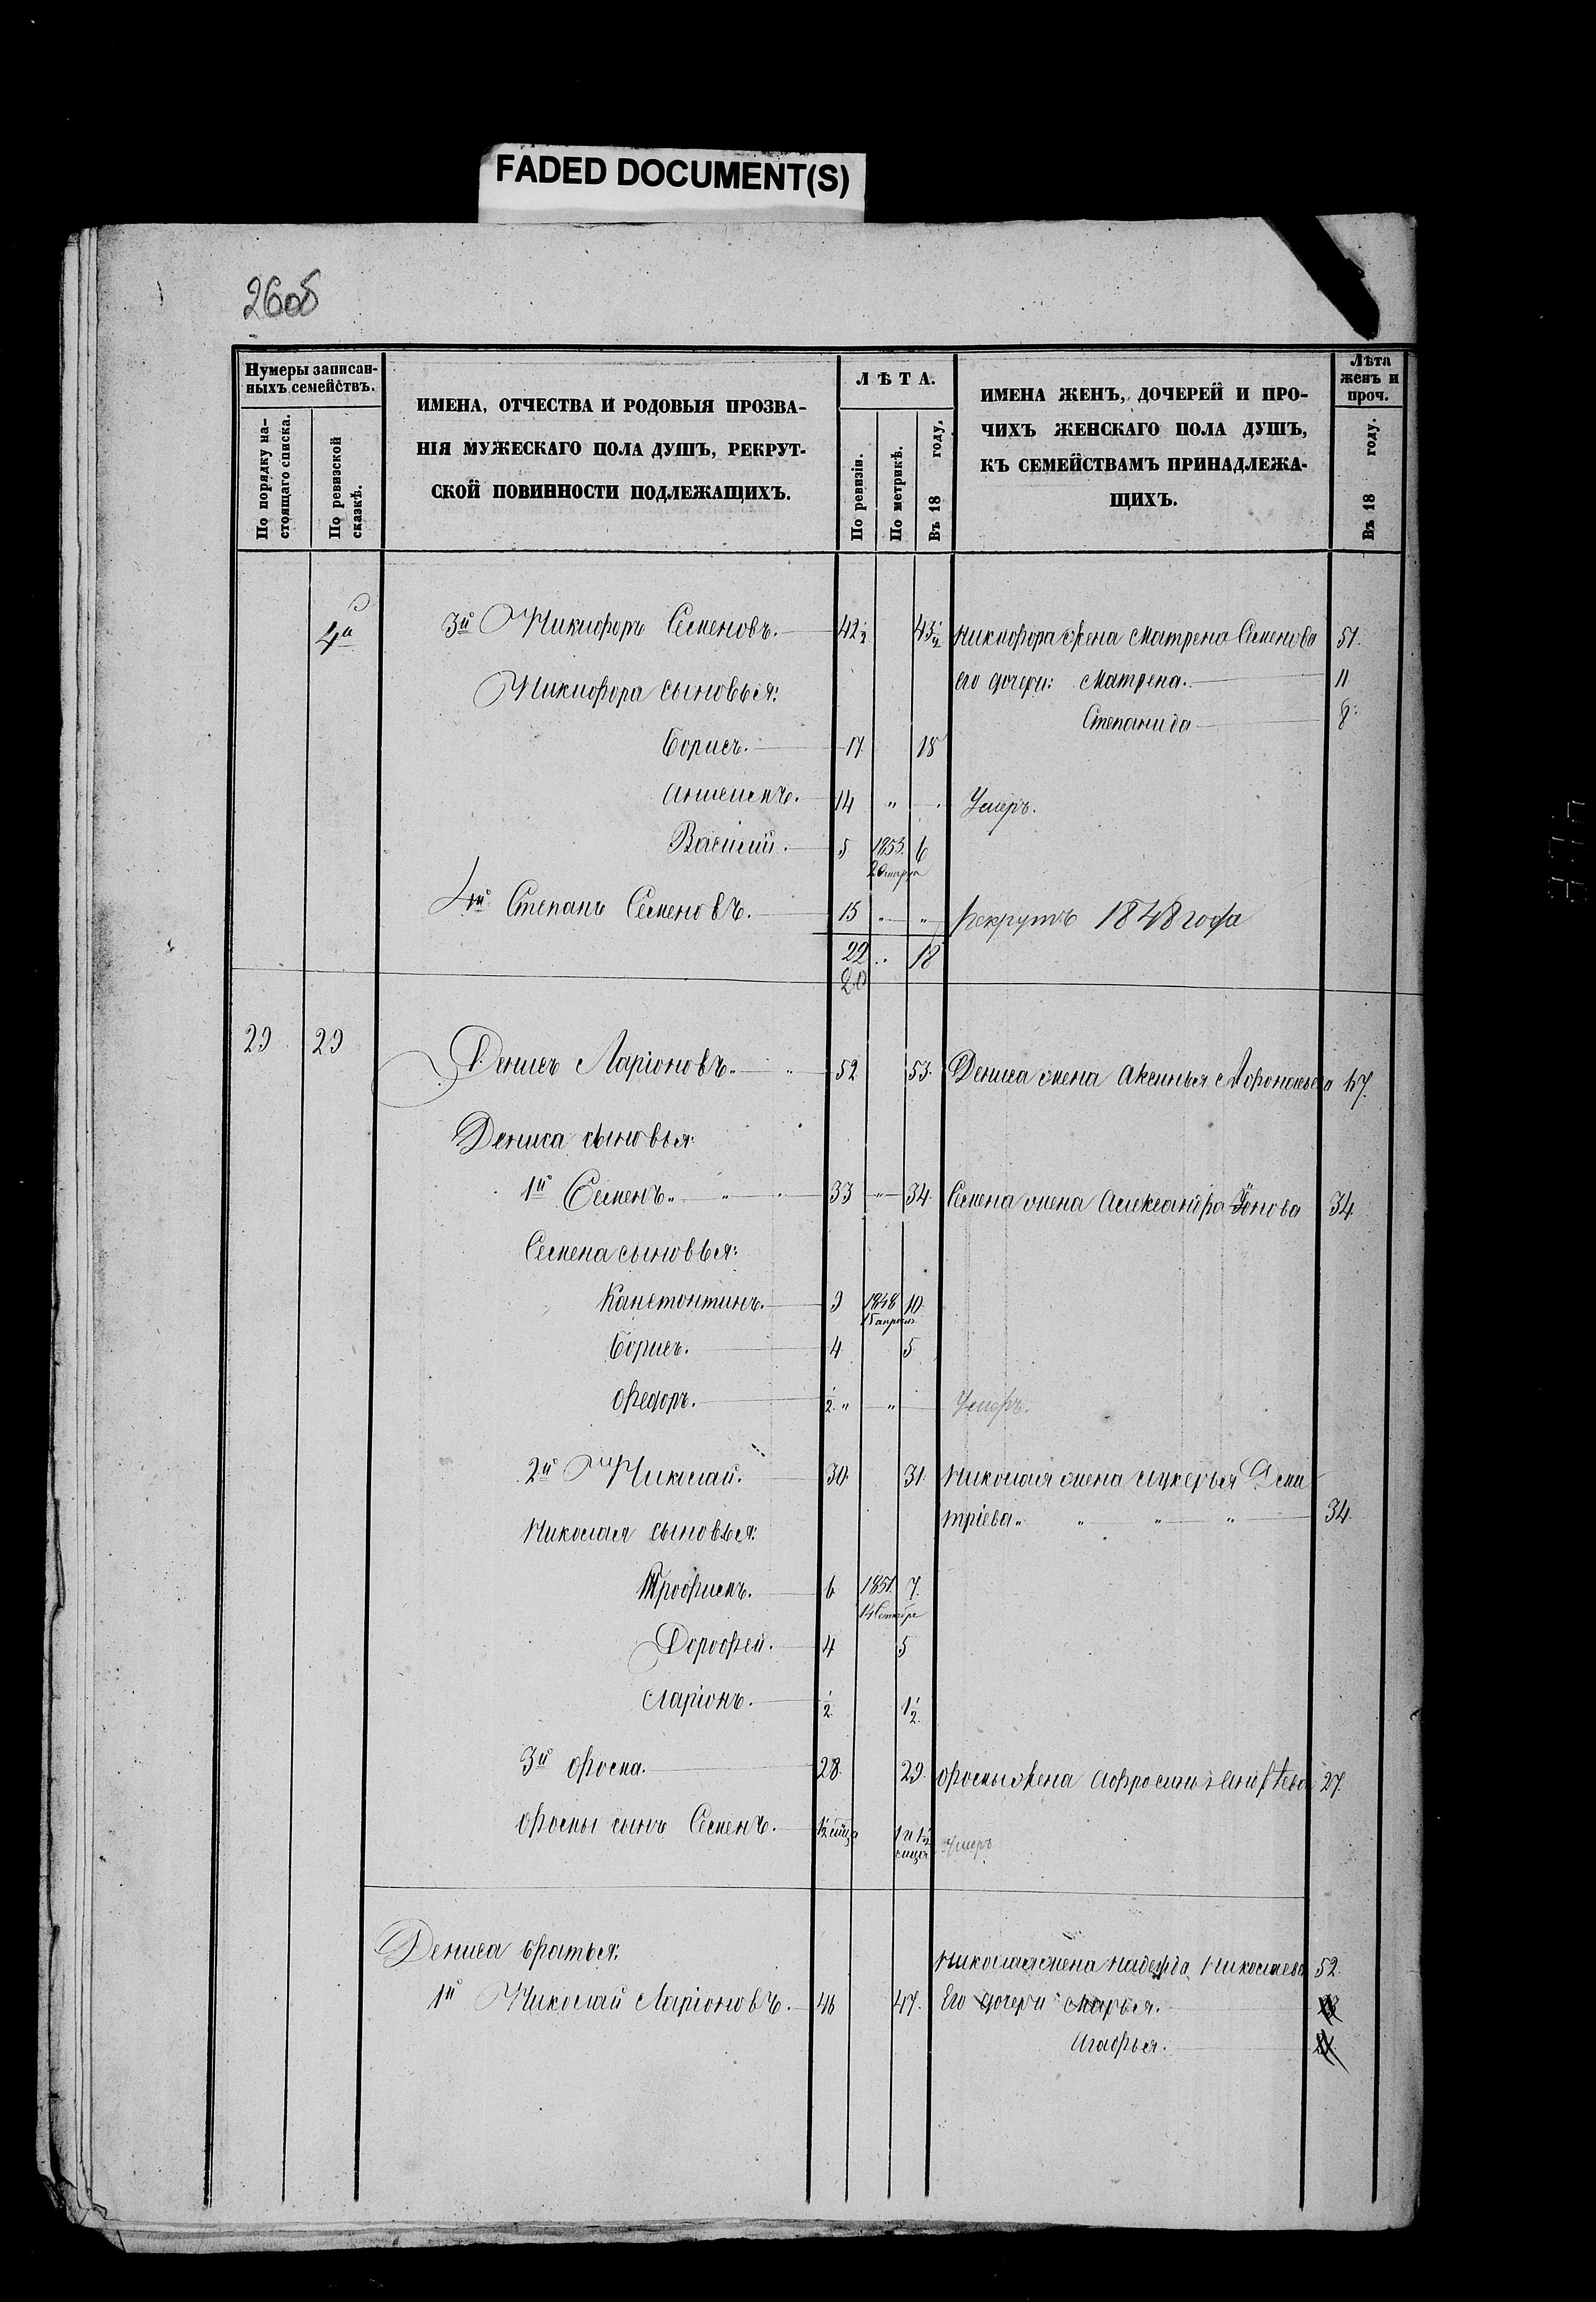 FADED DOCUMENT(S)
26об
Нумеры записан-
ныхъ семействъ.
По порядку на-
стоящаго списка.
По ревизской
сказкѣ.
ИМЕНА, ОТЧЕСТВА И РОДОВЫЯ ПРОЗВА-
НІЯ МУЖЕСКАГО ПОЛА ДУШЪ, РЕКРУТ-
СКОЙ ПОВИННОСТИ ПОДЛЕЖАЩИХЪ.
ЛѢТА.
По ревизіи.
По метрикѣ.
Въ 18 году.
ИМЕНА ЖЕНЪ, ДОЧЕРЕЙ И ПРО-
ЧИХЪ ЖЕНСКАГО ПОЛА ДУШЪ,
КЪ СЕМЕЙСТВАМЪ ПРИНАДЛЕЖА-
ЩИХЪ.
Лѣта
женъ и
проч.
Въ 18 году.
3й Никифоръ Семеновъ. 42½ 43½ Никифора жена Матрена Семенова 51.
Никифора сыновья: его дочери: Матрена. 11
Степанида 8.
Борисъ. 17 18
14 " Умеръ.
Василій. 5 1853. 6
4й Степанъ Семеновъ. 15 " " рекрутъ 1848 года
22 18
20
29 29 Денисъ Ларіоновъ. 52 53. Дениса жена Аксинья 47.
Дениса сыновья:
1й Семенъ. 33 " 34. Семена жена Александра Іонова 34
Семена сыновья:
Канстонтинъ. 9 1848 10
15 апреля
Борисъ. 4 5
Федоръ. ½ " " Умеръ.
2й Николай. 30. 31. Николая жена Лукерья Дми
тріева " " " 34.
Николая сыновья:
Трофимъ. 6 1851. 7.
14 Сентября
Дорофей. 4 5
Ларіонъ. ½ 1½
3й Фома. 28. 29. Фомы жена Афросинья 27.
Фомы сынъ Семенъ. Умеръ
Дениса братья: Николая жена Надежда Николаева 52.
1й Николай Ларіоновъ. 46 47. Его дочери Марья.
Агафья.